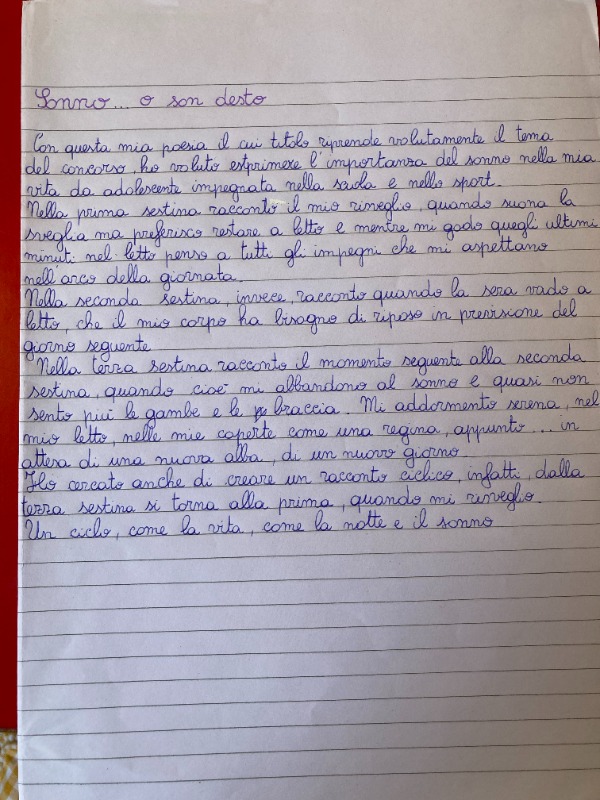 Sonno... o son desto
Con questa mia poesia il cui titolo riprende volutamente il tema
del concorso, ho voluto esprimere l'importanza del sonno nella mia
vita da adolescente impegnata nella scuola e nello sport.
Nella prima sestina racconto il mio risveglio, quando suona la
sveglia ma preferisco restare a letto e mentre mi godo quegli ultimi
minuti nel letto penso a tutti gli impegni che mi aspettano
nell'arco della giornata.
Nella seconda sestina, invece, racconto quando la sera vado a
letto, che il mio corpo ha bisogno di riposo in previsione del
giorno seguente
Nella terza sestina racconto il momento seguente alla seconda
sestina, quando cioè mi abbandono al sonno e quasi non
sento più le gambe e le braccia. Mi addormento serena, nel
mio letto, nelle mie coperte come una regina, appunto... in
attesa di una nuova alba, di un nuovo giorno.
Ho cercato anche di creare un racconto ciclico, infatti, dalla
terza sestina si torna alla prima, quando mi risveglio.
Un ciclo, come la vita, come la notte e il sonno